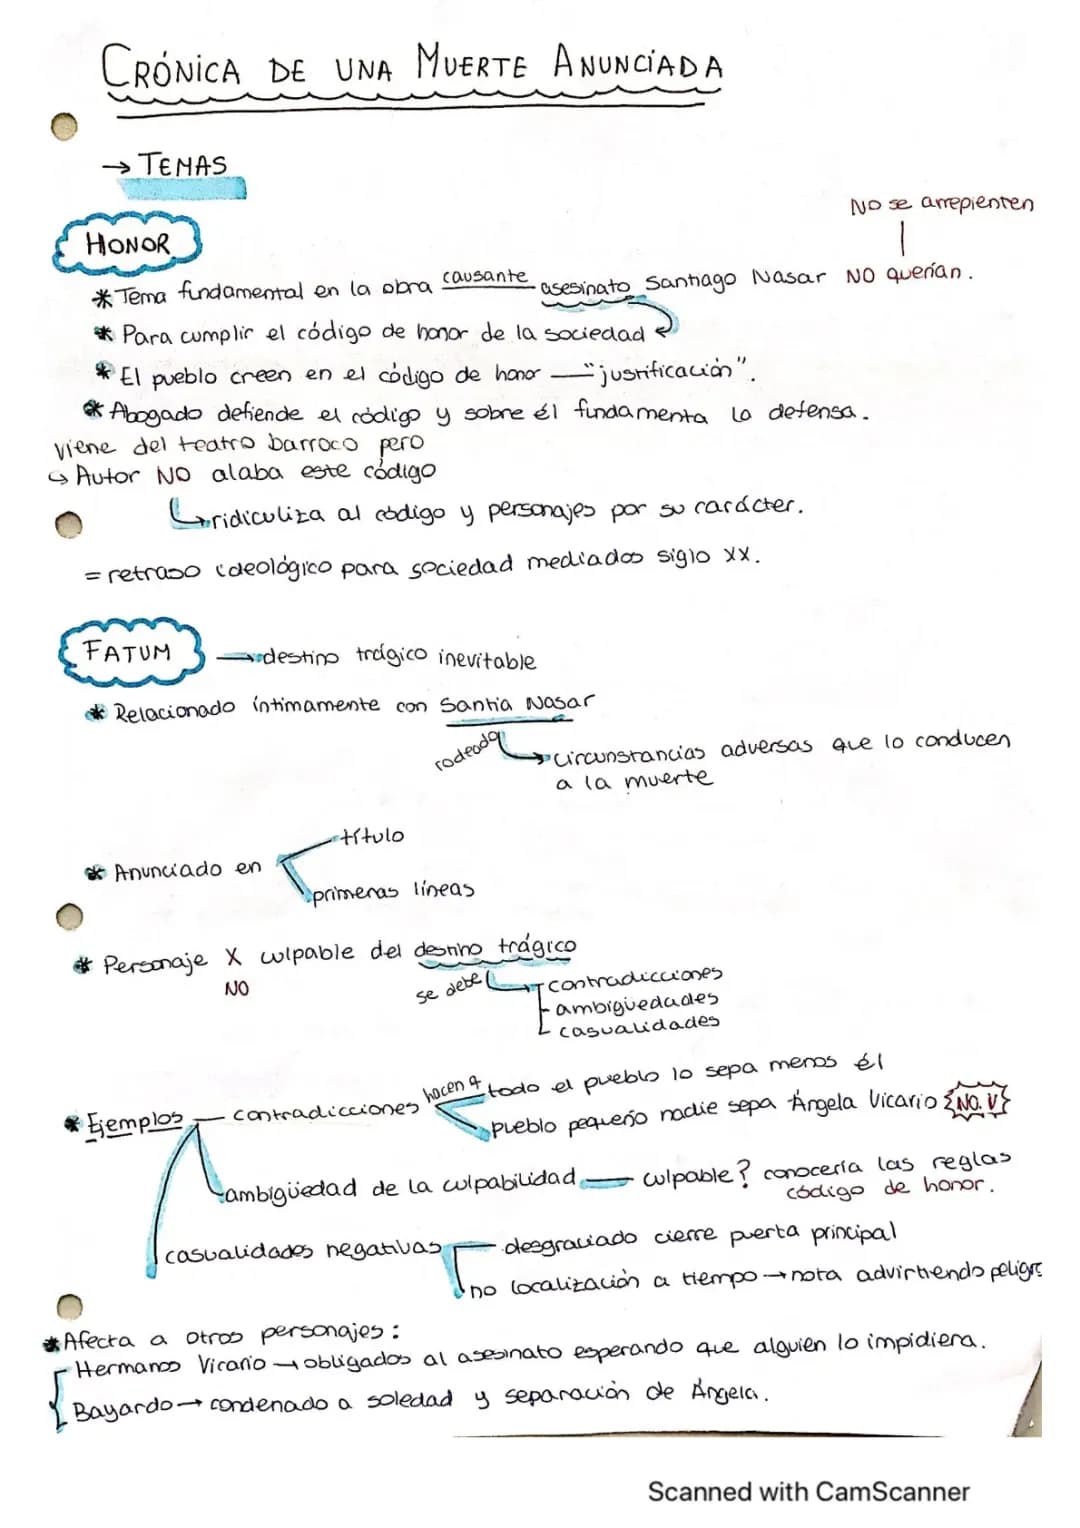 CRÓNICA DE UNA MUERTE ANUNCIADA
→ TEMAS
NO se arrepienten
HONOR
* Tema fundamental en la obra causante asesinato Santiago Nasar NO querían.
* Para cumplir el código de honor de la sociedad
* El pueblo creen en el código de honor — "justificación".
* Abogado defiende el código y sobre él fundamenta la defensa.
viene del teatro barroco pero
↳ Autor NO alaba este código
↳ ridiculiza al código y personajes por su carácter.
= retraso ideológico para sociedad mediados siglo XX.
FATUM → destino trágico inevitable
* Relacionado íntimamente con Santia Nasar
rodeado → circunstancias adversas que lo conducen
a la muerte
título
* Anunciado en
primeras líneas
* Personaje X culpable del destino trágico
NO
se debe → contradicciones
- ambigüedades
casualidades
* Ejemplos — contradicciones hacen q todo el pueblo lo sepa menos él
pueblo pequeño nadie sepa Ángela Vicario NO. V
ambigüedad de la culpabilidad — culpable? conocería las reglas
código de honor.
casualidades negativas — desgraciado cierre puerta principal
no localización a tiempo → nota advirtiendo peligro
* Afecta a otros personajes:
Hermanos Vicario → obligados al asesinato esperando que alguien lo impidiera.
Bayardo → condenado a soledad y separación de Ángela.
Scanned with CamScanner